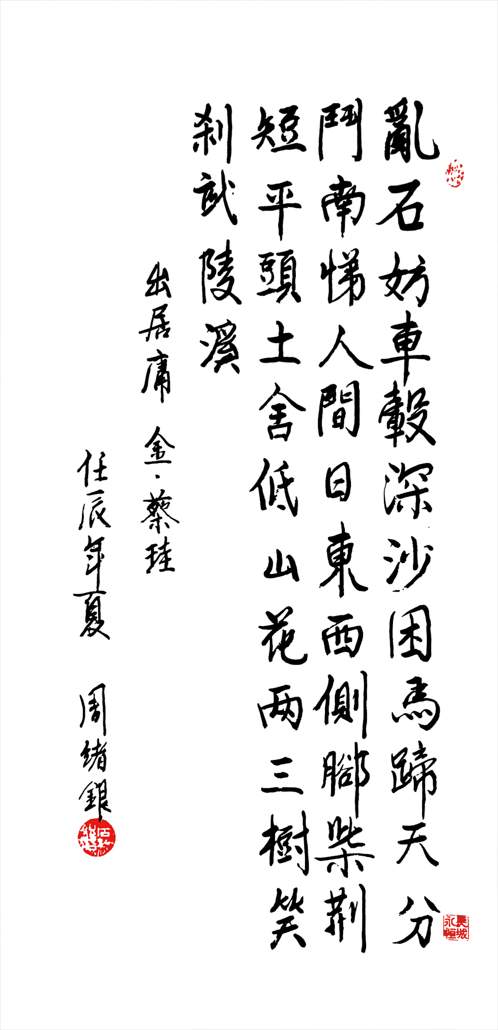 亂石妨車轂深沙困馬蹄天分
鬥南悌人間日東西側腳柴荊
短平頭土舍低山花两三樹笑
刹武陵溪
出居庸 金·蔡珪
任辰年夏 周緒銀
長城永恒